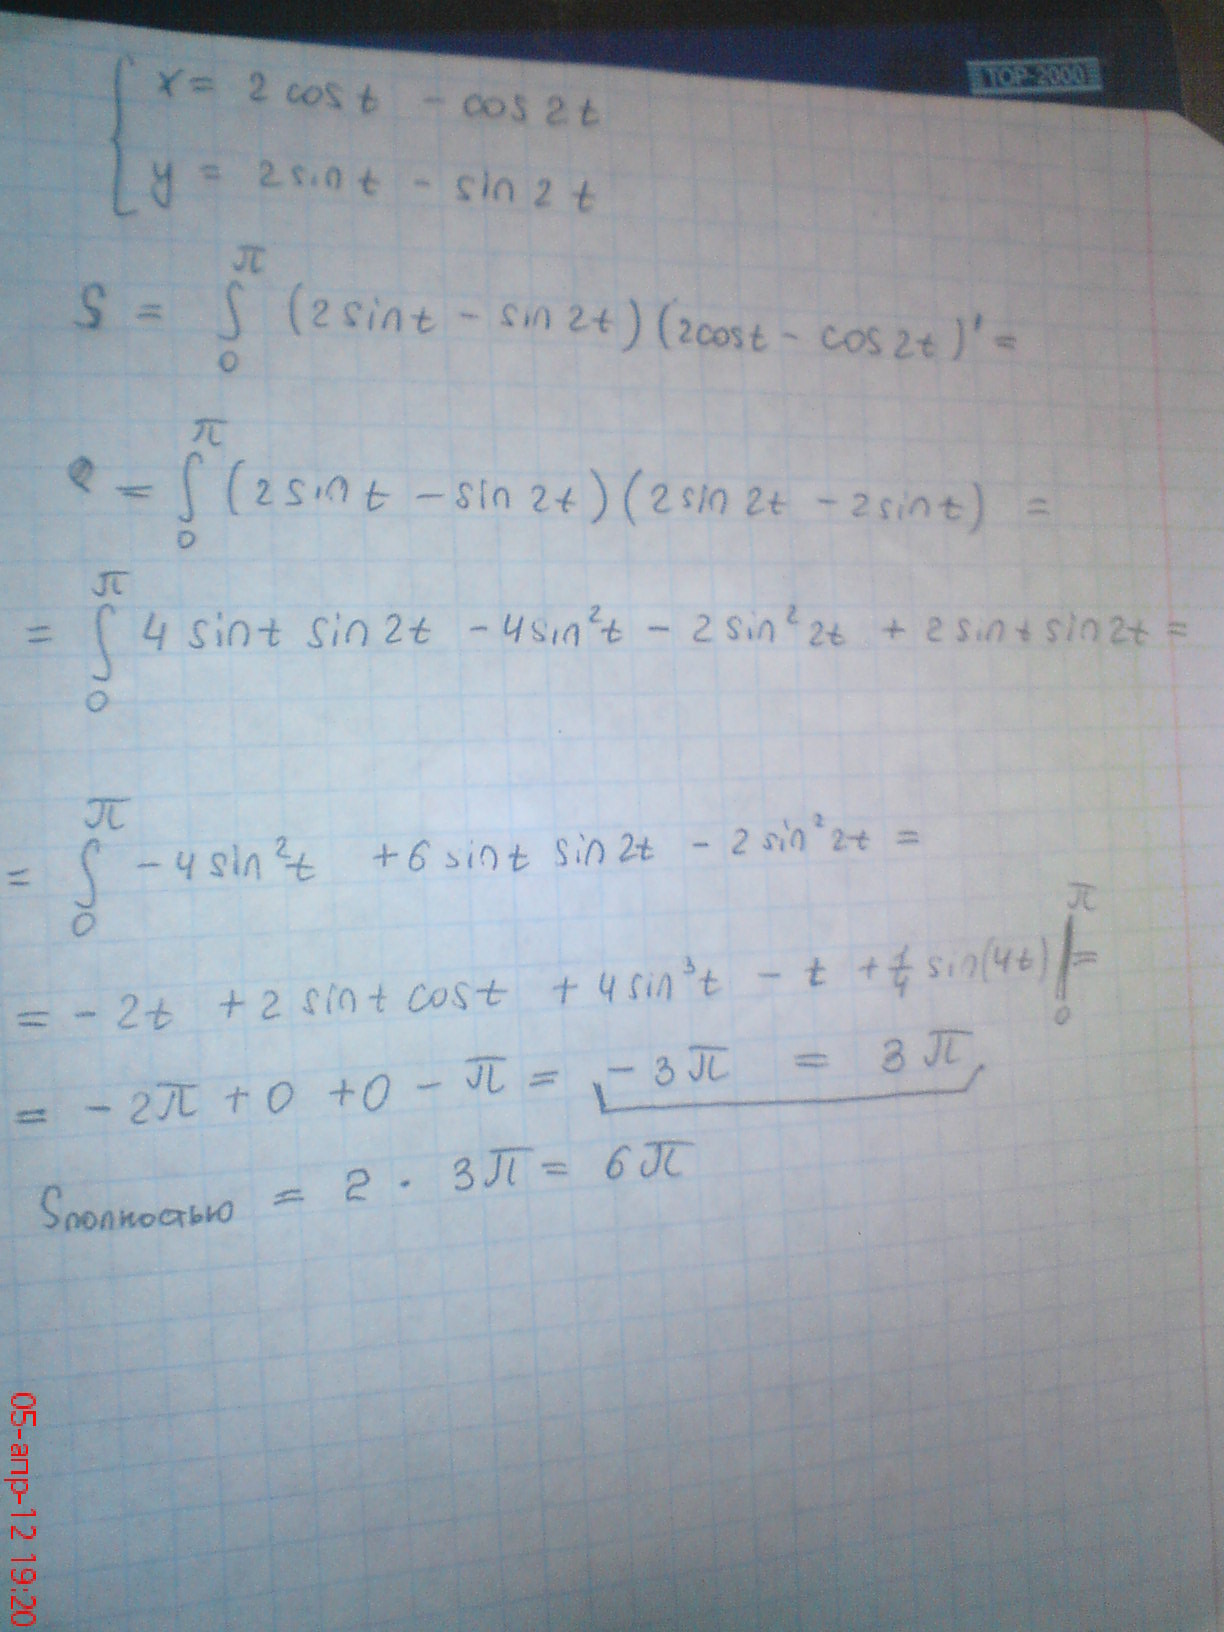 TOP-2000
x = 2 cos t - cos 2t
y = 2 sin t - sin 2t
S = ∫₀^π (2 sin t - sin 2t)(2 cos t - cos 2t)' =
= ∫₀^π (2 sin t - sin 2t)(2 sin 2t - 2 sin t) =
= ∫₀^π 4 sin t sin 2t - 4 sin² t - 2 sin² 2t + 2 sin t sin 2t =
= ∫₀^π - 4 sin² t + 6 sin t sin 2t - 2 sin² 2t =
= - 2t + 2 sin t cos t + 4 sin³ t - t + 1/4 sin(4t) |₀^π =
= - 2π + 0 + 0 - π = - 3π = 3π
Sполностью = 2 · 3π = 6π
05-апр-12 19:20